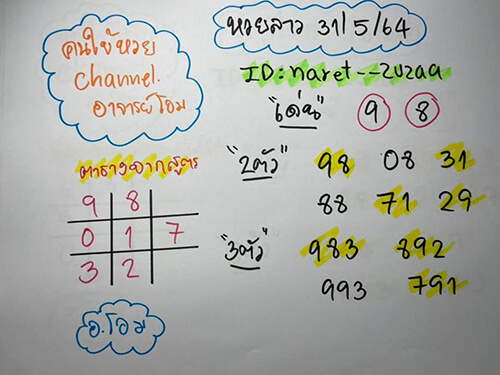 คนไข้หวย
Channel.
อาจารย์โอม
หวยลาว 31/5/64
ID: naret--2U2aa
"เด่น" 9 8
"2ตัว" 98 08 31
88 71 29
"3ตัว" 983 892
993 791
ตารางจากสูตร
9 8
0 1 7
3 2
อ.โอม